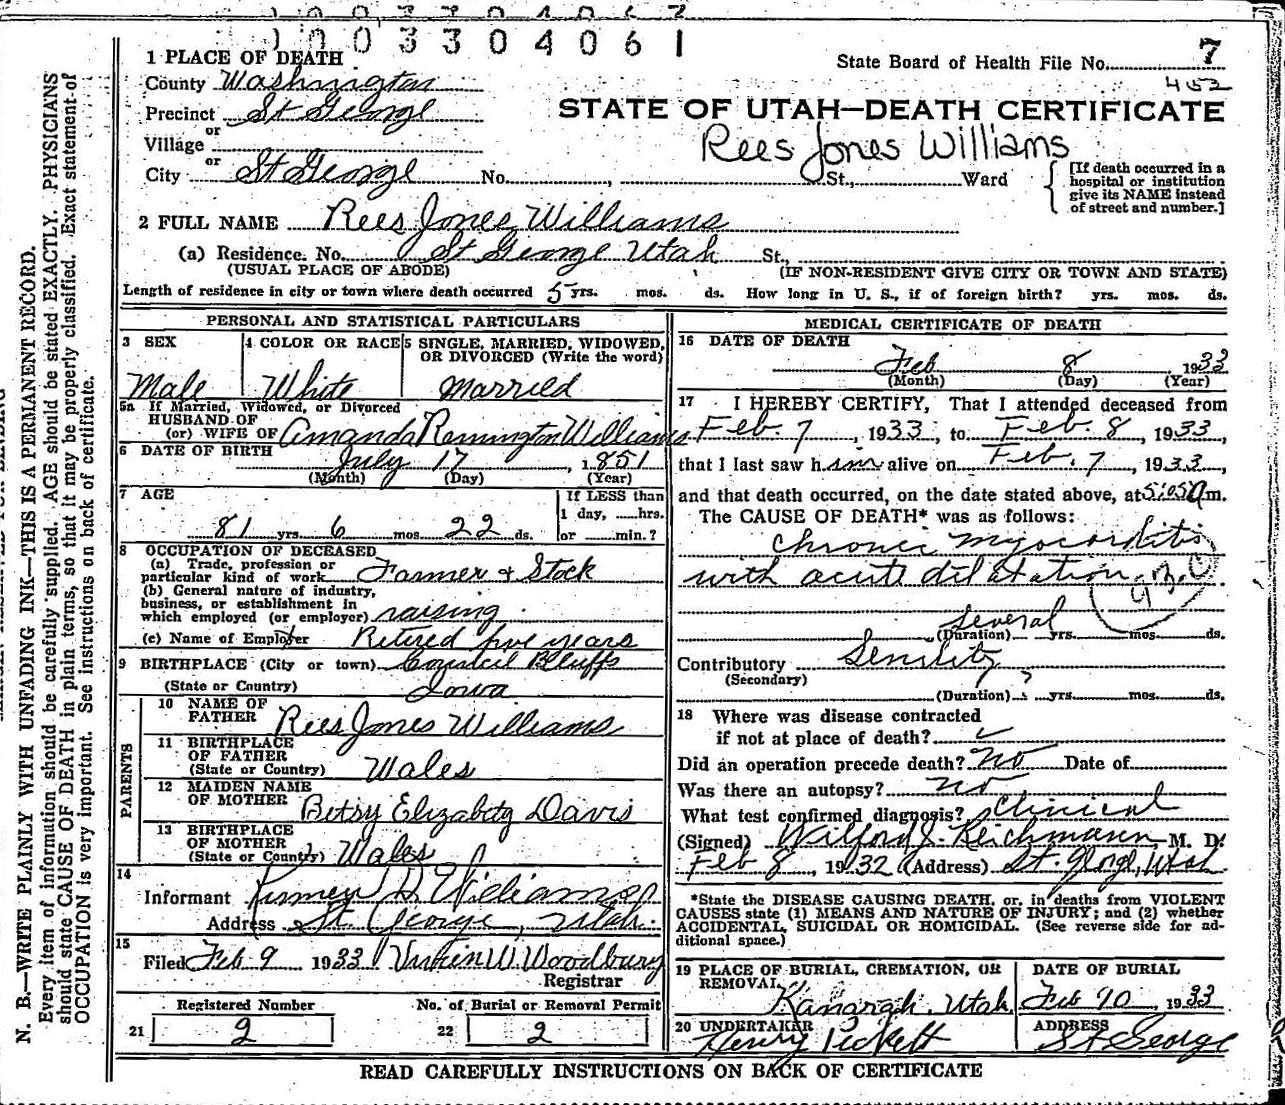 1003304061
State Board of Health File No. 7
452
STATE OF UTAH—DEATH CERTIFICATE
Rees Jones Williams
1 PLACE OF DEATH
County Washington
Precinct St George
or
Village
or
City St George No. , St., Ward
[If death occurred in a
hospital or institution
give its NAME instead
of street and number.]
2 FULL NAME Rees Jones Williams
(a) Residence. No. St George Utah St.,
(USUAL PLACE OF ABODE) (IF NON-RESIDENT GIVE CITY OR TOWN AND STATE)
Length of residence in city or town where death occurred 5 yrs. mos. ds. How long in U. S., if of foreign birth? yrs. mos. ds.
PERSONAL AND STATISTICAL PARTICULARS
3 SEX
Male
4 COLOR OR RACE
White
5 SINGLE, MARRIED, WIDOWED,
OR DIVORCED (Write the word)
Married
5a If Married, Widowed, or Divorced
HUSBAND OF
(or) WIFE OF Amanda Remington Williams
6 DATE OF BIRTH
July 17, 1851
(Month) (Day) (Year)
7 AGE
81 yrs 6 mos 22 ds.
If LESS than
1 day, hrs.
or min.?
8 OCCUPATION OF DECEASED
(a) Trade, profession or
particular kind of work Farmer & Stock
(b) General nature of industry,
business, or establishment in
which employed (or employer) raising
(c) Name of Employer Retired five years
9 BIRTHPLACE (City or town) Council Bluffs
(State or Country) Iowa
PARENTS
10 NAME OF
FATHER Rees Jones Williams
11 BIRTHPLACE
OF FATHER
(State or Country) Wales
12 MAIDEN NAME
OF MOTHER Betsy Elizabeth Davis
13 BIRTHPLACE
OF MOTHER
(State or Country) Wales
14
Informant D. Williams
Address St George, Utah.
15
Filed Feb 9 1933 W. Woodbury
Registrar
Registered Number
21 2
No. of Burial or Removal Permit
22 2
MEDICAL CERTIFICATE OF DEATH
16 DATE OF DEATH
Feb 8 1933
(Month) (Day) (Year)
17 I HEREBY CERTIFY, That I attended deceased from
Feb. 7, 1933, to Feb. 8, 1933,
that I last saw him alive on Feb. 7, 1933,
and that death occurred, on the date stated above, at 5:05 a m.
The CAUSE OF DEATH* was as follows:
chronic myocarditis
with acute dilatation
Several
(Duration) yrs. mos. ds.
Contributory Senility
(Secondary)
?
(Duration) yrs. mos. ds.
18 Where was disease contracted
if not at place of death?
Did an operation precede death? no Date of
Was there an autopsy? no
What test confirmed diagnosis? Clinical
(Signed) Wilford J. Reichmann, M. D.
Feb 8, 1932 (Address) St. George, Utah
*State the DISEASE CAUSING DEATH, or, in deaths from VIOLENT
CAUSES state (1) MEANS AND NATURE OF INJURY; and (2) whether
ACCIDENTAL, SUICIDAL OR HOMICIDAL. (See reverse side for ad-
ditional space.)
19 PLACE OF BURIAL, CREMATION, OR
REMOVAL
Kanarah, Utah.
DATE OF BURIAL
Feb 10 1933
20 UNDERTAKER
Henry Pickett
ADDRESS
St George
READ CAREFULLY INSTRUCTIONS ON BACK OF CERTIFICATE
N. B.—WRITE PLAINLY WITH UNFADING INK—THIS IS A PERMANENT RECORD.
Every item of information should be carefully supplied. AGE should be stated EXACTLY. PHYSICIANS
should state CAUSE OF DEATH in plain terms, so that it may be properly classified. Exact statement of
OCCUPATION is very important. See instructions on back of certificate.